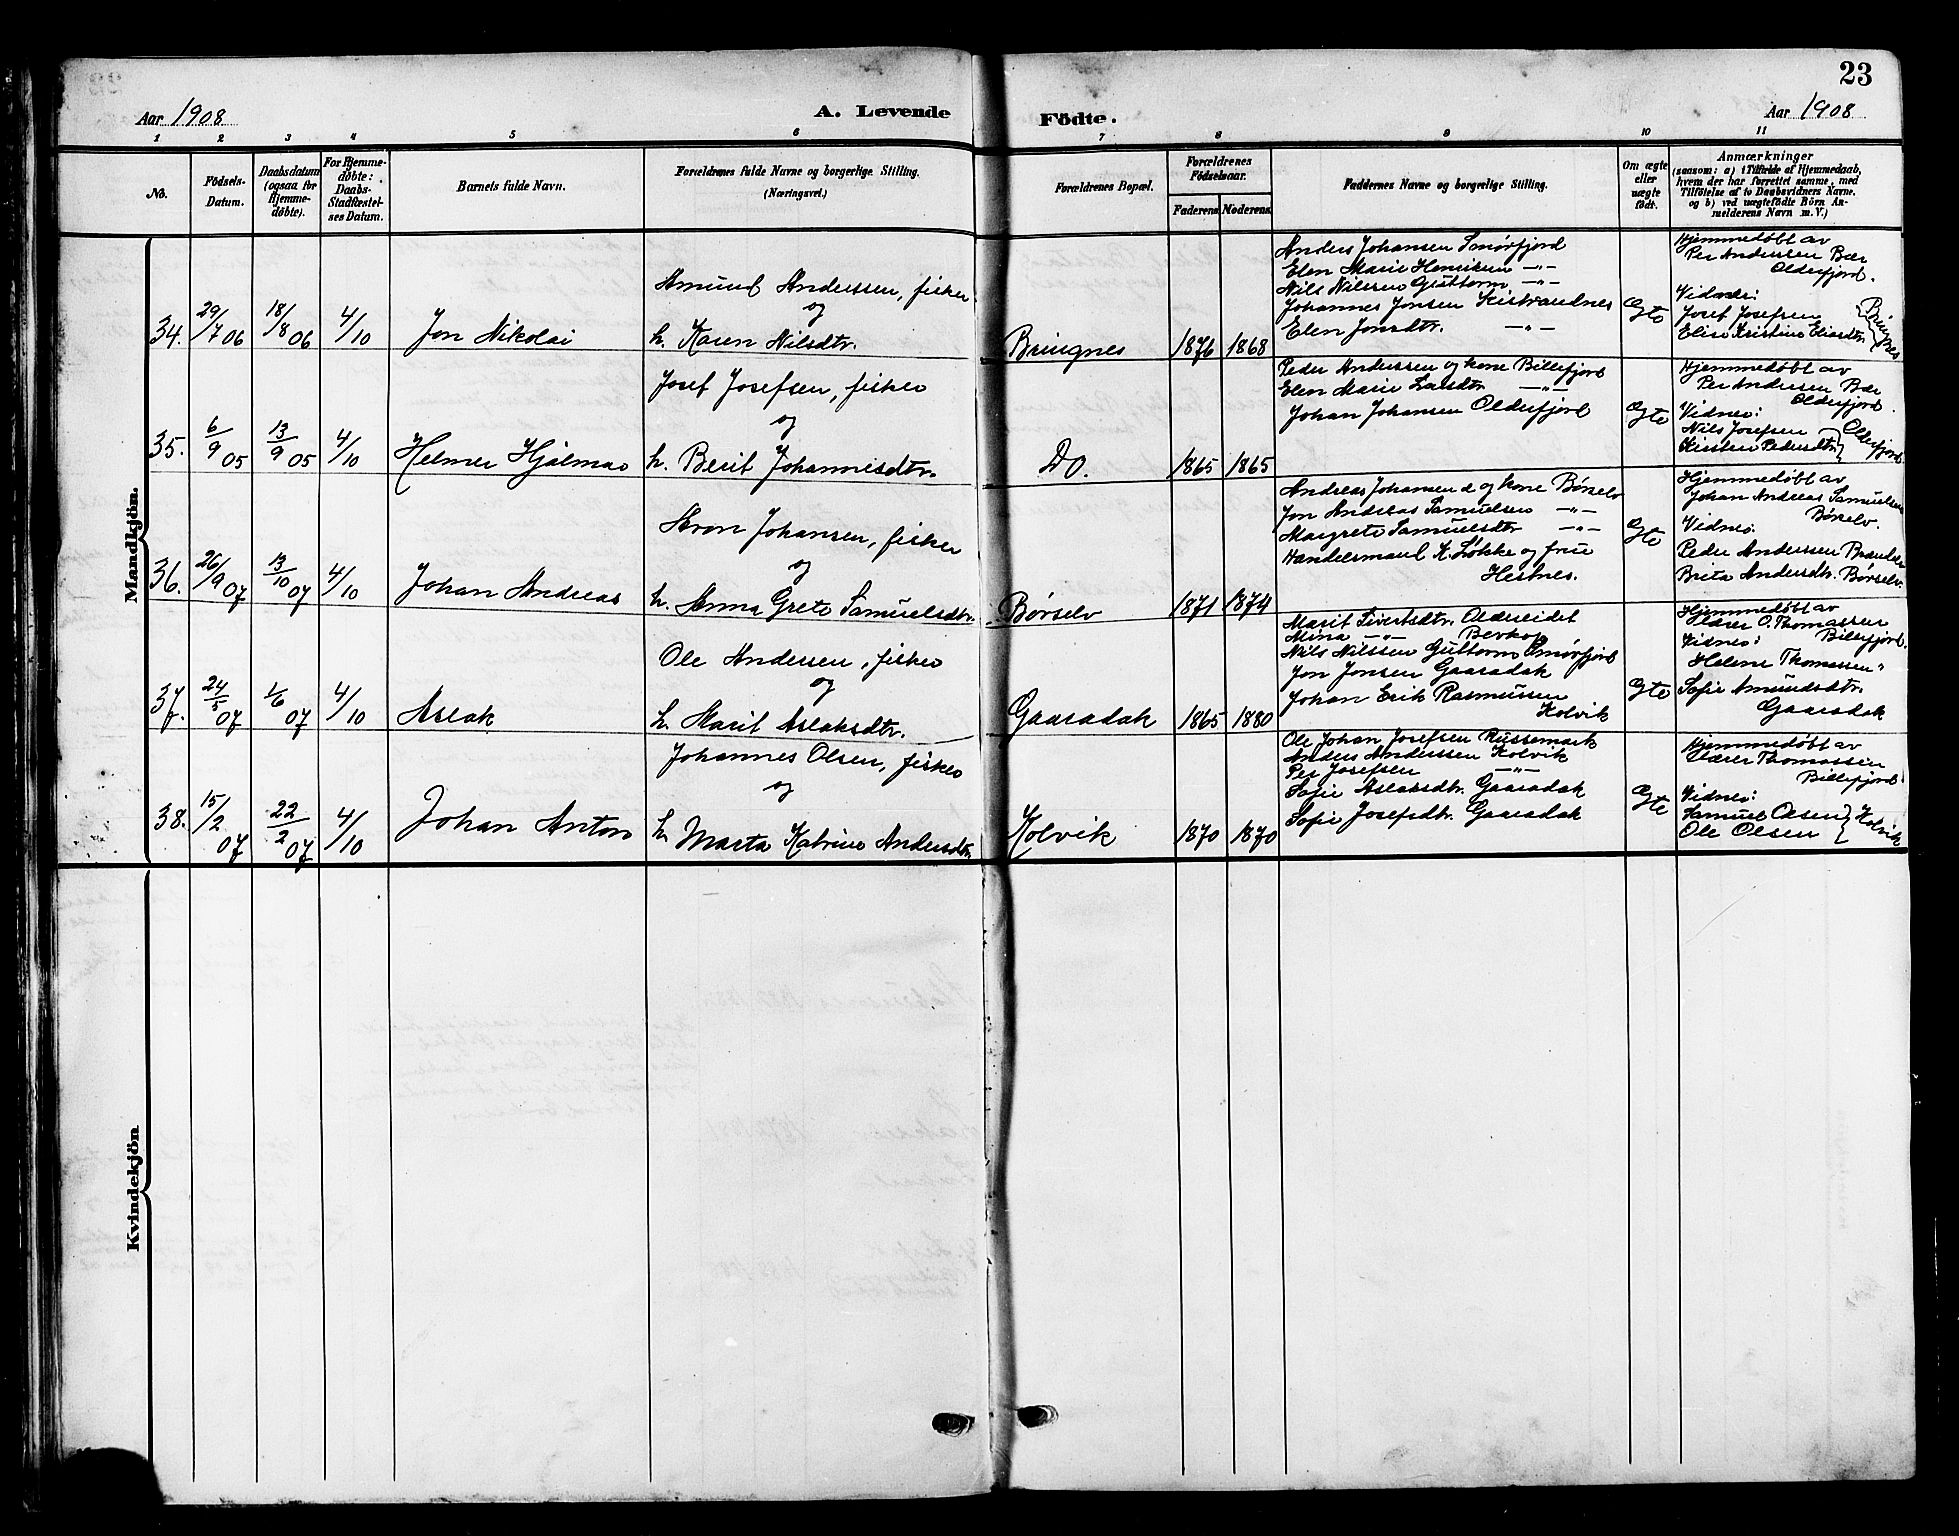 23
Aar 1908
A. Levende
Födte.
Aar 1908
1 2 3 4 5 6 7 8 9 10 11
No.
Födsels-
Datum.
Daabsdatum
(ogsaa for
Hjemme-
døbte).
For Hjemme-
døbte:
Daabs-
Stadfæstel-
ses Datum.
Barnets fulde Navn.
Forældrenes fulde Navne og borgerlige Stilling.
(Næringsvei.)
Forældrenes Bopæl.
Forældrenes
Fødselsaar.
Faderens
Moderens
Faddernes Navne og borgerlige Stilling.
Om ægte
eller
uægte
født.
Anmærkninger
(saasom: a) i Tilfælde af Hjemmedaab,
hvem der har forrettet samme, med
Tilføielse af to Daabsvidners Navne,
og b) ved uægtefødte Börn An-
melderens Navn m. V.)
Mandkjön.
34.
29/7 06
18/8 06
4/10
Jon Nikolai
Amund Anderssen, fisker
og
h. Karen Nilsdtr.
Bringnes
1876
1868
Anders Johansen Smørfjord
Elen Marie Henriksen —"—
Nils Nilssen Guttorm —"—
Johannes Jonsen Kistrandnes
Elen Jonsdtr. —"—
Ægte
Hjemmedøbt av
Per Anderssen Bær
Olderfjord.
Vidner:
Josef Josefsen
Elise Kristine Eliasdtr
Bringnes
35.
6/9 05
13/9 05
4/10
Helmer Hjalmar
Josef Josefsen, fisker
og
h. Berit Johannesdtr.
Do.
1865
1865
Peder Anderssen og kone Billefjord
Elen Marie Larsdtr —"—
Johan Johansen Olderfjord
Ægte
Hjemmedøbt av
Per Andersen Bær
Olderfjord.
Vidner:
Nils Josefsen
Kirsten Pedersdtr
Olderfjord
36.
26/9 07
13/10 07
4/10
Johan Andreas
Aron Johansen, fisker
og
h. Anna Grete Samuelsdtr.
Børselv
1871
1874
Andreas Johansen d og kone Børselv
Jon Andreas Samuelsen —"—
Margrete Samuelsdtr —"—
Handelsmand K. Løkke og frue
Hestnes.
Ægte
Hjemmedøbt av
Johan Andreas Samuelsen
Børselv.
Vidner:
Peder Anderssen
Brita Andersdtr. Børselv.
37.
24/5 07
1/6 07
4/10
Aslak
Ole Andersen, fisker
og
h. Marit Aslaksdtr.
Gaaradak
1865
1880
Marit Sivertsdtr. Oldereidet
Mina —"— Berkop
Nils Nilssen Guttorm Smørfjord
Jon Jonsen Gaaradak
Johan Erik Rasmussen
Kolvik
Ægte
Hjemmedøbt av
Lærer O. Thomassen
Billefjord.
Vidner:
Helene Thomassen "
Sofie Amundsdtr.
Gaaradak
38.
15/2 07
22/2 07
4/10
Johan Anton
Johannes Olsen, fisker
og
h. Marta Katrine Andersdtr.
Kolvik
1870
1870
Ole Johan Josefsen Russemark
Anders Anderssen Kolvik
Per Josefsen —"—
Sofie Aslaksdtr. Gaaradak
Sofie Josefsdtr. Gaaradak
Ægte
Hjemmedøbt av
Lærer Thomassen
Billefjord
Vidner:
Samuel Olsen
Ole Olsen
Kolvik
Kvindekjön